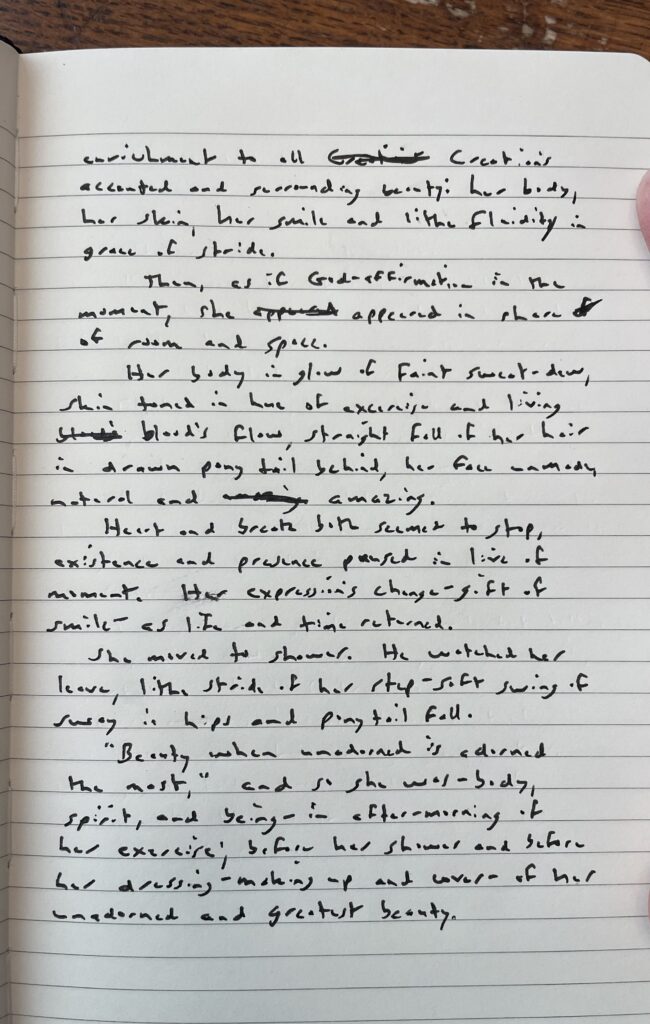 enrichment to all Creation's
accented and surrounding beauty: her body,
her skin, her smile and lithe fluidity in
grace of stride.
Then, as if God-affirmation in the
moment, she appeared in share
of room and space.
Her body in glow of faint sweat-dew,
skin toned in hue of excercise and living
blood's flow, straight fall of her hair
in drawn pony tail behind, her face
natural and amazing.
Heart and breath both seemed to stop,
existence and presence paused in live of
moment. Her expression's change-gift of
smile- as life and time returned.
She moved to shower. He watched her
leave, lithe stride of her step-soft swing of
sway in hips and ponytail fall.
"Beauty when unadorned is adorned
the most," and so she was-body,
spirit, and being- in after-morning of
her exercise; before her shower and before
her dressing-making up and cover- of her
unadorned and greatest beauty.